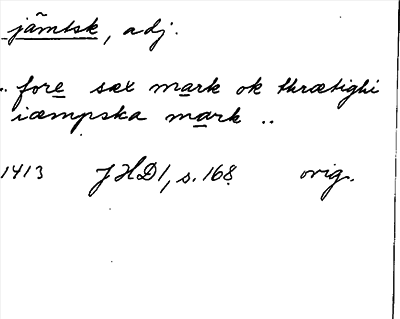 jämtsk, adj.
.. fore sæx mark ok thrætighi
iæmpska mark ..
1413 JHD1, s. 168 orig.